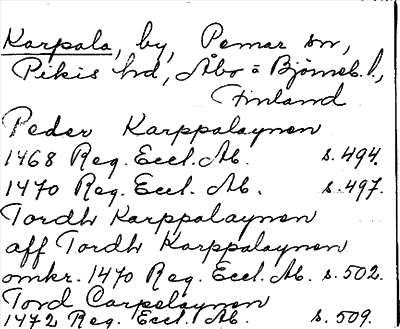 Karpala, by, Pemar sn,
Pikis hd, Åbo o Björneb. l.,
Finland
Peder Karppalaynen
1468 Reg. Eccl. Ab. s. 494.
1470 Reg. Eccl. Ab. s. 497.
Tordh Karppalaynen
aff Tordh Karppalaynen
omkr. 1470 Reg. Eccl. Ab. s. 502.
Tord Carpelaynen
1472 Reg. Eccl. Ab. s. 509.